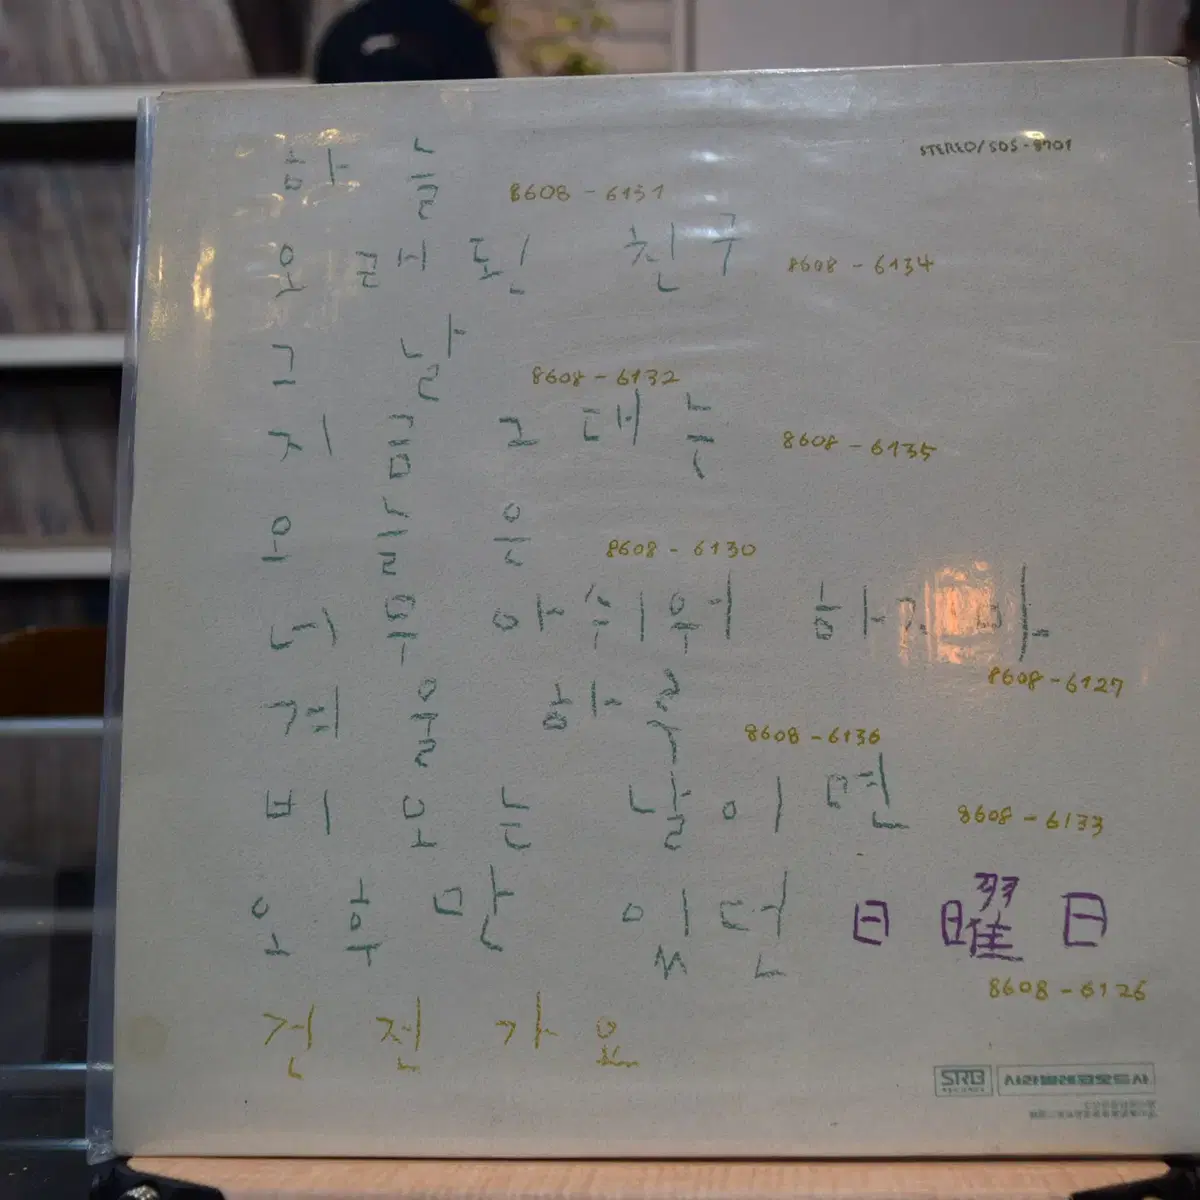 STEREO/SDS-8701
하늘 8608-6131
오래된 친구 8608-6134
그날 8608-6132
지금 그대는 8608-6135
오늘은 8608-6130
너무 아쉬워 하지마 8608-6127
겨울 하루 8608-6136
비 오는 날이면 8608-6133
오후만 있던 日曜日 8608-6126
건전가요
SRB 서라벌레코오드사